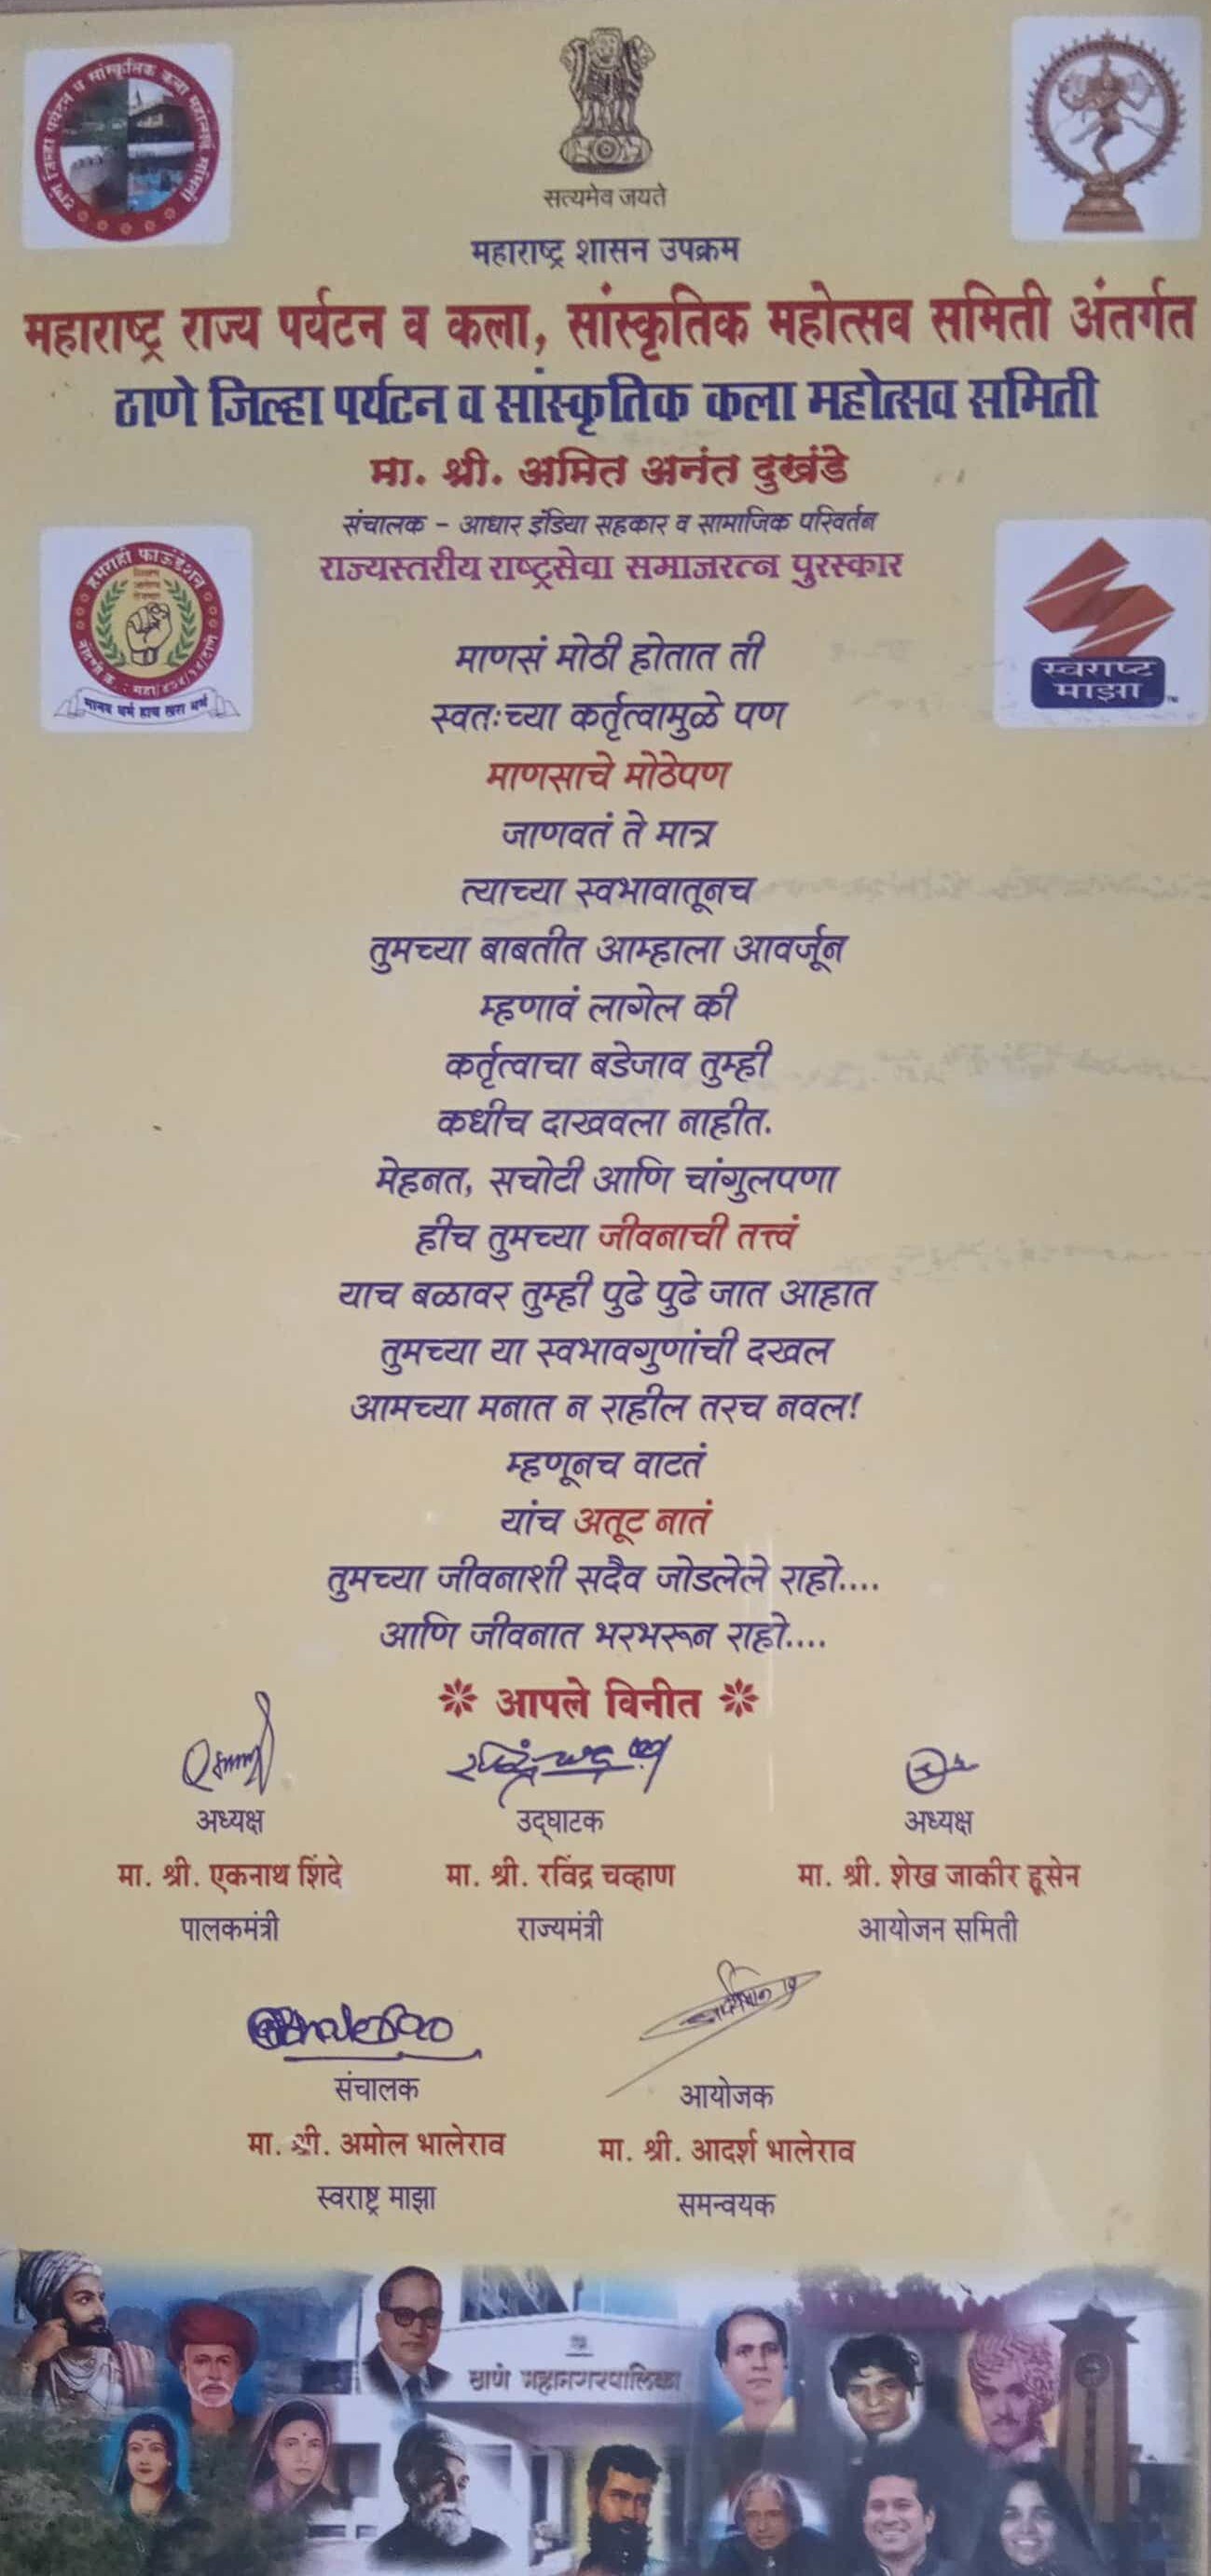 ठाणे जिल्हा पर्यटन व सांस्कृतिक कला महोत्सव समिती
सत्यमेव जयते
महाराष्ट्र शासन उपक्रम
महाराष्ट्र राज्य पर्यटन व कला, सांस्कृतिक महोत्सव समिती अंतर्गत
ठाणे जिल्हा पर्यटन व सांस्कृतिक कला महोत्सव समिती
मा. श्री. अमित अनंत दुखंडे
संचालक - आधार इंडिया सहकार व सामाजिक परिवर्तन
राज्यस्तरीय राष्ट्रसेवा समाजरत्न पुरस्कार
हमराही फाऊंडेशन
मानव धर्म हाच खरा धर्म
स्वराष्ट्र
माझा
माणसं मोठी होतात ती
स्वतःच्या कर्तृत्वामुळे पण
माणसाचे मोठेपण
जाणवतं ते मात्र
त्याच्या स्वभावातूनच
तुमच्या बाबतीत आम्हाला आवर्जून
म्हणावं लागेल की
कर्तृत्वाचा बडेजाव तुम्ही
कधीच दाखवला नाहीत.
मेहनत, सचोटी आणि चांगुलपणा
हीच तुमच्या जीवनाची तत्त्वं
याच बळावर तुम्ही पुढे पुढे जात आहात
तुमच्या या स्वभावगुणांची दखल
आमच्या मनात न राहील तरच नवल!
म्हणूनच वाटतं
यांच अतूट नातं
तुमच्या जीवनाशी सदैव जोडलेले राहो....
आणि जीवनात भरभरून राहो....
आपले विनीत
अध्यक्ष उद्घाटक अध्यक्ष
मा. श्री. एकनाथ शिंदे मा. श्री. रविंद्र चव्हाण मा. श्री. शेख जाकीर हूसेन
पालकमंत्री राज्यमंत्री आयोजन समिती
संचालक आयोजक
मा. श्री. अमोल भालेराव मा. श्री. आदर्श भालेराव
स्वराष्ट्र माझा समन्वयक
ठाणे महानगरपालिका